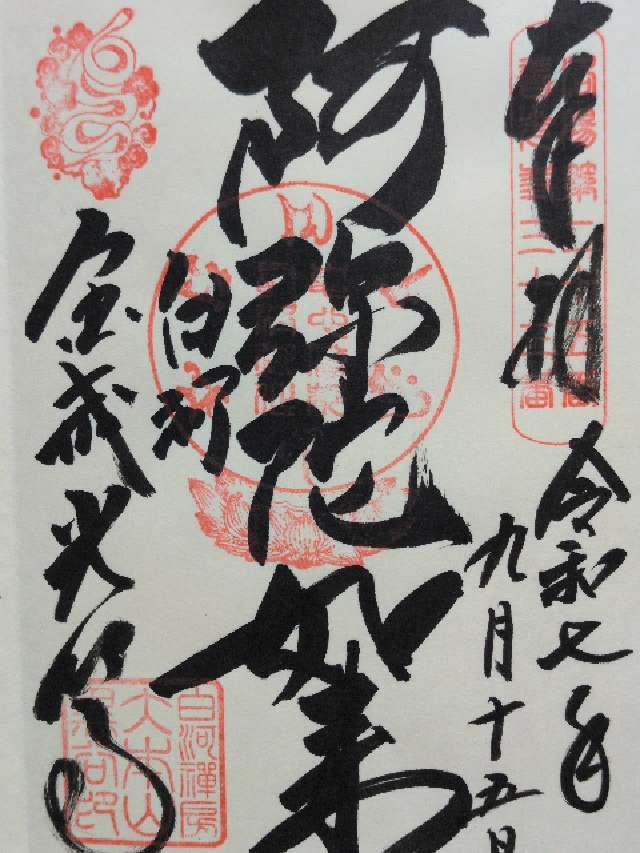 奉拝
令和七年
九月十五日
阿弥陀如来
白河
金戒光明寺
白河禪房
大本山